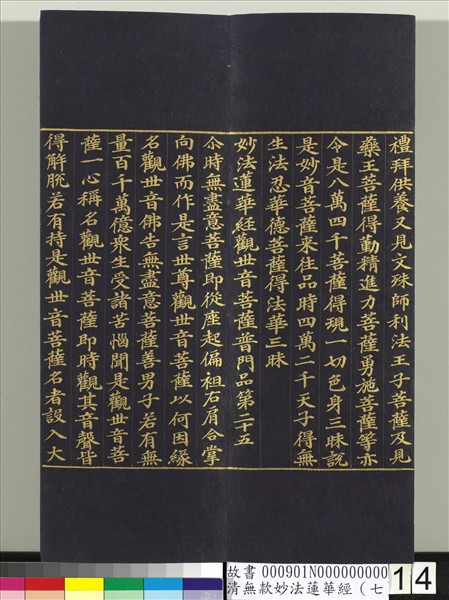 禮拜供養又見文殊師利法王子菩薩及見
藥王菩薩得勤精進力菩薩勇施菩薩等亦
令是八萬四千菩薩得現一切色身三昧說
是妙音菩薩來往品時四萬二千天子得無
生法忍華德菩薩得法華三昧
妙法蓮華經觀世音菩薩普門品第二十五
尒時無盡意菩薩即從座起偏袒右肩合掌
向佛而作是言世尊觀世音菩薩以何因緣
名觀世音佛告無盡意菩薩善男子若有無
量百千萬億衆生受諸苦惱聞是觀世音菩
薩一心稱名觀世音菩薩即時觀其音聲皆
得解脫若有持是觀世音菩薩名者設入大
故書 000901N000000000
清無款妙法蓮華經（七
14